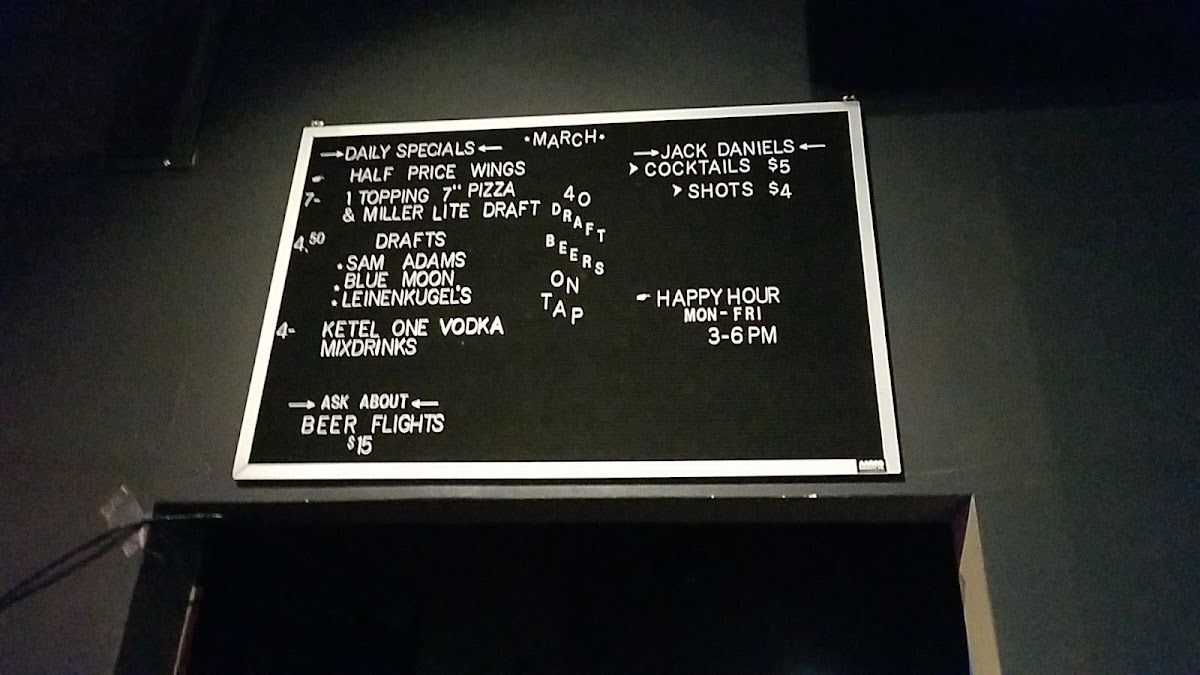 *MARCH*
→DAILY SPECIALS←
HALF PRICE WINGS
7- 1 TOPPING 7" PIZZA
& MILLER LITE DRAFT
4.50 DRAFTS
•SAM ADAMS
•BLUE MOON
•LEINENKUGEL'S
4- KETEL ONE VODKA
MIXDRINKS
→ASK ABOUT←
BEER FLIGHTS
$15
40
DRAFT
BEERS
ON
TAP
→JACK DANIELS←
COCKTAILS $5
SHOTS $4
HAPPY HOUR
MON-FRI
3-6 PM